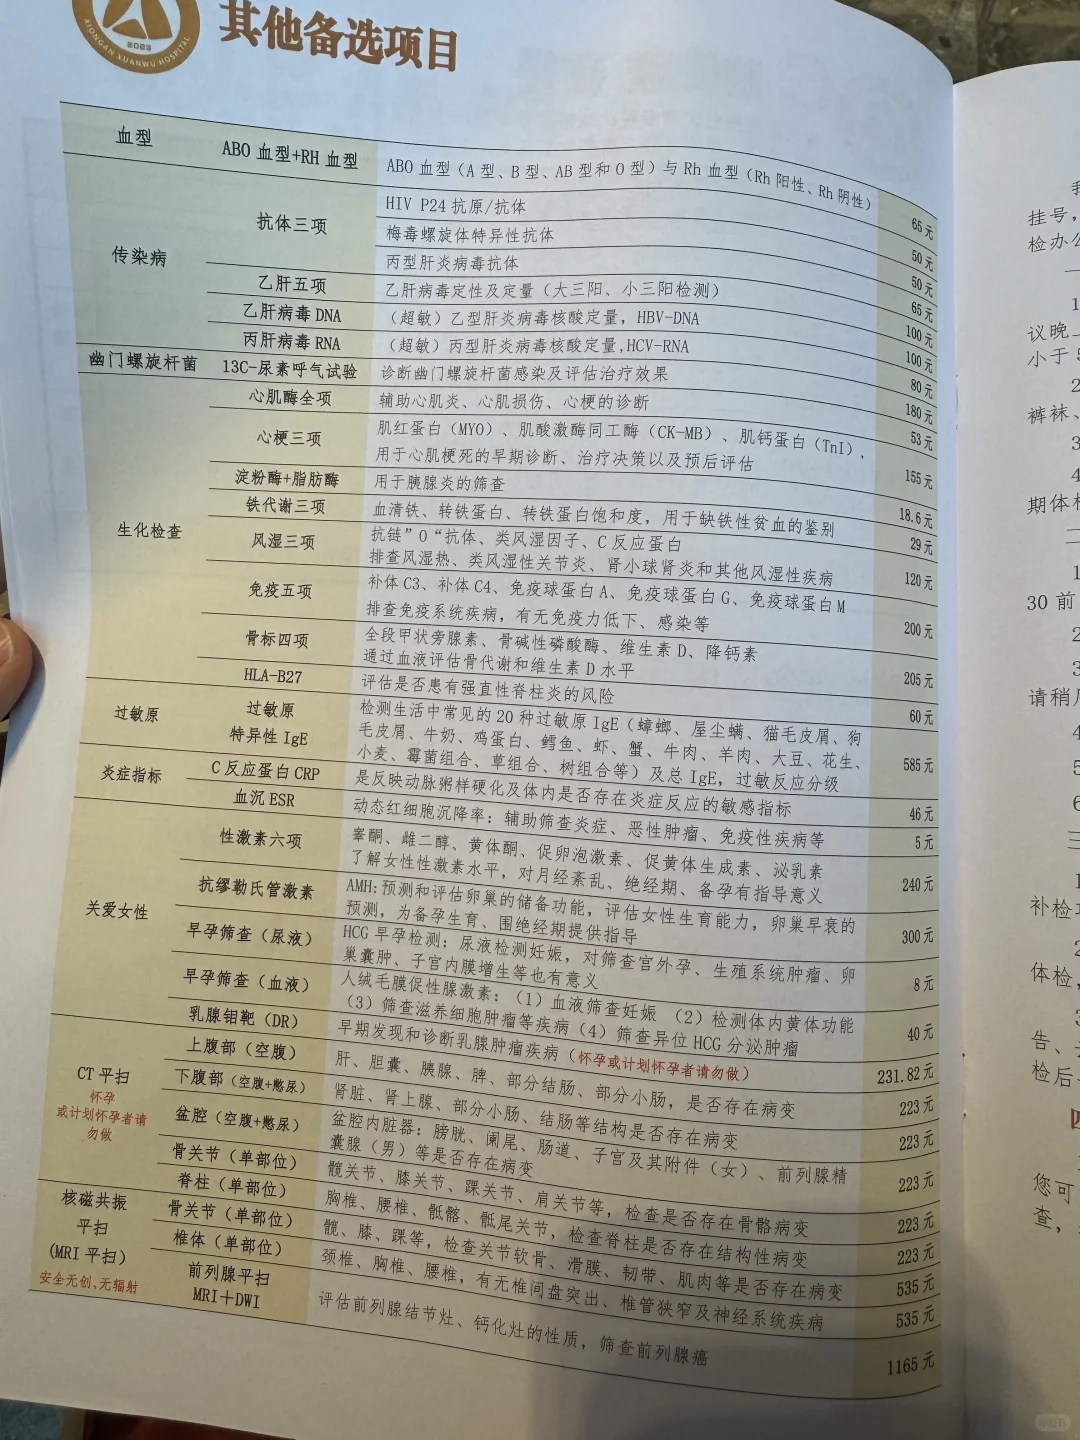 2023
XIONGAN XUANWU HOSPITAL
其他备选项目
血型
ABO 血型+RH 血型
ABO 血型（A 型、B 型、AB 型和 O 型）与 Rh 血型（Rh 阳性、Rh 阴性）
65 元
传染病
抗体三项
HIV P24 抗原/抗体
50 元
梅毒螺旋体特异性抗体
50 元
丙型肝炎病毒抗体
65 元
乙肝五项
乙肝病毒定性及定量（大三阳、小三阳检测）
100 元
乙肝病毒 DNA
（超敏）乙型肝炎病毒核酸定量，HBV-DNA
100 元
丙肝病毒 RNA
（超敏）丙型肝炎病毒核酸定量,HCV-RNA
80 元
幽门螺旋杆菌
13C-尿素呼气试验
诊断幽门螺旋杆菌感染及评估治疗效果
180 元
生化检查
心肌酶全项
辅助心肌炎、心肌损伤、心梗的诊断
53 元
心梗三项
肌红蛋白（MYO）、肌酸激酶同工酶（CK-MB）、肌钙蛋白（TnI），
用于心肌梗死的早期诊断、治疗决策以及预后评估
155 元
淀粉酶+脂肪酶
用于胰腺炎的筛查
18.6 元
铁代谢三项
血清铁、转铁蛋白、转铁蛋白饱和度，用于缺铁性贫血的鉴别
29 元
风湿三项
抗链”O“抗体、类风湿因子、C 反应蛋白
排查风湿热、类风湿性关节炎、肾小球肾炎和其他风湿性疾病
120 元
免疫五项
补体 C3、补体 C4、免疫球蛋白 A、免疫球蛋白 G、免疫球蛋白 M
排查免疫系统疾病，有无免疫力低下、感染等
200 元
骨标四项
全段甲状旁腺素、骨碱性磷酸酶、维生素 D、降钙素
通过血液评估骨代谢和维生素 D 水平
205 元
HLA-B27
评估是否患有强直性脊柱炎的风险
60 元
过敏原
过敏原
特异性 IgE
检测生活中常见的 20 种过敏原 IgE（蟑螂、屋尘螨、猫毛皮屑、狗
毛皮屑、牛奶、鸡蛋白、鳕鱼、虾、蟹、牛肉、羊肉、大豆、花生、
小麦、霉菌组合、草组合、树组合等）及总 IgE，过敏反应分级
585 元
炎症指标
C 反应蛋白 CRP
是反映动脉粥样硬化及体内是否存在炎症反应的敏感指标
46 元
血沉 ESR
动态红细胞沉降率：辅助筛查炎症、恶性肿瘤、免疫性疾病等
5 元
关爱女性
性激素六项
睾酮、雌二醇、黄体酮、促卵泡激素、促黄体生成素、泌乳素
了解女性性激素水平，对月经紊乱、绝经期、备孕有指导意义
240 元
抗缪勒氏管激素
AMH:预测和评估卵巢的储备功能，评估女性生育能力，卵巢早衰的
预测，为备孕生育、围绝经期提供指导
300 元
早孕筛查（尿液）
HCG 早孕检测：尿液检测妊娠，对筛查宫外孕、生殖系统肿瘤、卵
巢囊肿、子宫内膜增生等也有意义
8 元
早孕筛查（血液）
人绒毛膜促性腺激素：（1）血液筛查妊娠 （2）检测体内黄体功能
（3）筛查滋养细胞肿瘤等疾病（4）筛查异位 HCG 分泌肿瘤
40 元
乳腺钼靶（DR）
早期发现和诊断乳腺肿瘤疾病（怀孕或计划怀孕者请勿做）
231.82 元
CT 平扫
怀孕
或计划怀孕者请
勿做
上腹部（空腹）
肝、胆囊、胰腺、脾、部分结肠、部分小肠，是否存在病变
223 元
下腹部（空腹+憋尿）
肾脏、肾上腺、部分小肠、结肠等结构是否存在病变
223 元
盆腔（空腹+憋尿）
盆腔内脏器：膀胱、阑尾、肠道、子宫及其附件（女）、前列腺精
囊腺（男）等是否存在病变
223 元
骨关节（单部位）
髋关节、膝关节、踝关节、肩关节等，检查是否存在骨骼病变
223 元
脊柱（单部位）
胸椎、腰椎、骶髂、骶尾关节，检查脊柱是否存在结构性病变
223 元
核磁共振
平扫
(MRI 平扫)
安全无创、无辐射
骨关节（单部位）
髋、膝、踝等，检查关节软骨、滑膜、韧带、肌肉等是否存在病变
535 元
椎体（单部位）
颈椎、胸椎、腰椎，有无椎间盘突出、椎管狭窄及神经系统疾病
535 元
前列腺平扫
MRI＋DWI
评估前列腺结节灶、钙化灶的性质，筛查前列腺癌
1165 元
挂号，
检办公
1
议晚上
小于 5
2
裤袜、
3
4
期体检
二
1
30 前
2
3
请稍后
4
5
6
三
1
补检项
2
体检，
3
告、
检后
四
您可
查，